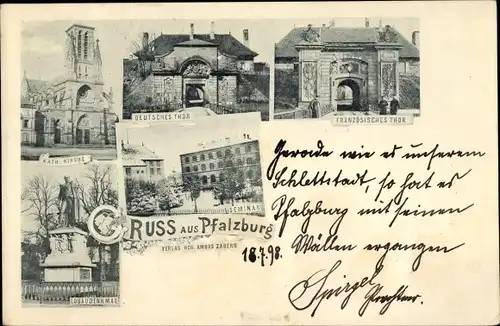 DEUTSCHES THOR
FRANZÖSISCHES THOR
KATH. KIRCHE
SEMINAR
GRUSS AUS PFALZBURG
VERLAG VON AMBOS ZABERN
LOBAUDENKMAL
18.7.98.
Gerade wie es unserem
Schlettstadt, so hat es
Pfalzburg mit seinen
Wällen ergangen
Spirgel